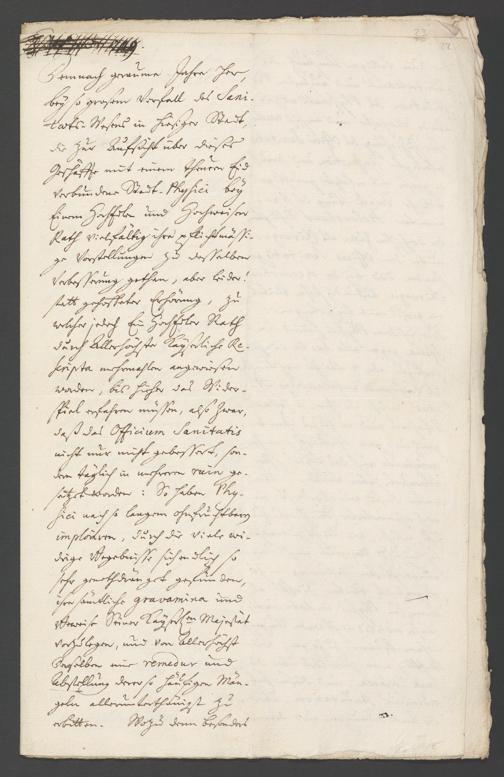 Demnach geraume Jahre her,
bey so großem Verfall des Sani-
taets-Wesens in hiesiger Stadt,
die zur Aufsicht über dieses
Geschäffte mit einem theuren Eid
verbundene Stadt-Physici bey
Einem HochEdlen und Hochweisen
Rath vielfältig ihre pflichtmässi-
ge Vorstellungen zu desselben
Verbesserung gethan, aber leider!
statt gehoffter Erhörung, zu
welcher jedoch Ein HochEdler Rath
durch Allerhöchste Kayserliche Re-
scripta mehrmahlen angewiesen
worden, bis hieher das Wider-
spiel erfahren müssen, also zwar,
daß das Officium Sanitatis
nicht nur nicht gebessert, son-
dern täglich in mehreren ruin ge-
setzet worden: So haben Phy-
sici nach so langem ohnfruchtbaren
imploriren, durch die viele wi-
drige Begebnisse sich endlich so
sehr genothdränget gefunden,
ihre sämtliche gravamina und
Beweise Seiner Kayserln Majestät
vorzulegen, und von Allerhöchst
Deroselben um remedur und
Abstellung derer so häuffigen Män-
geln allerunterthänigst zu
erbitten. Wozu dann besonders